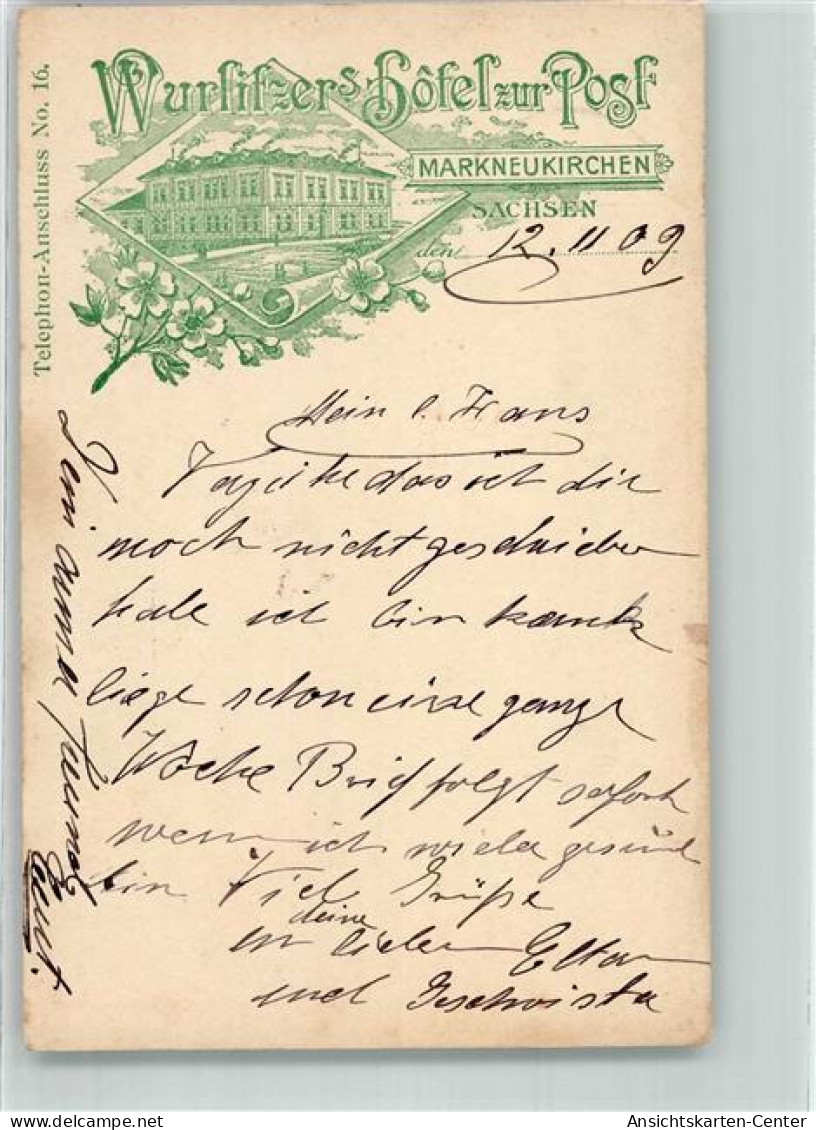 Wurlitzers Hôtel zur Post
MARKNEUKIRCHEN
SACHSEN
Telephon-Anschluss No. 16.
den 12. 11 09
Mein l. Frans
das ich dir
noch nicht geschrieben
habe ich bin krank
liege schon eine ganze
Woche Brief folgt sofort
wenn ich wieder gesund
bin Viele Grüße
an deine lieben Eltern
und Geschwister
Dein
Ansichtskarten-Center